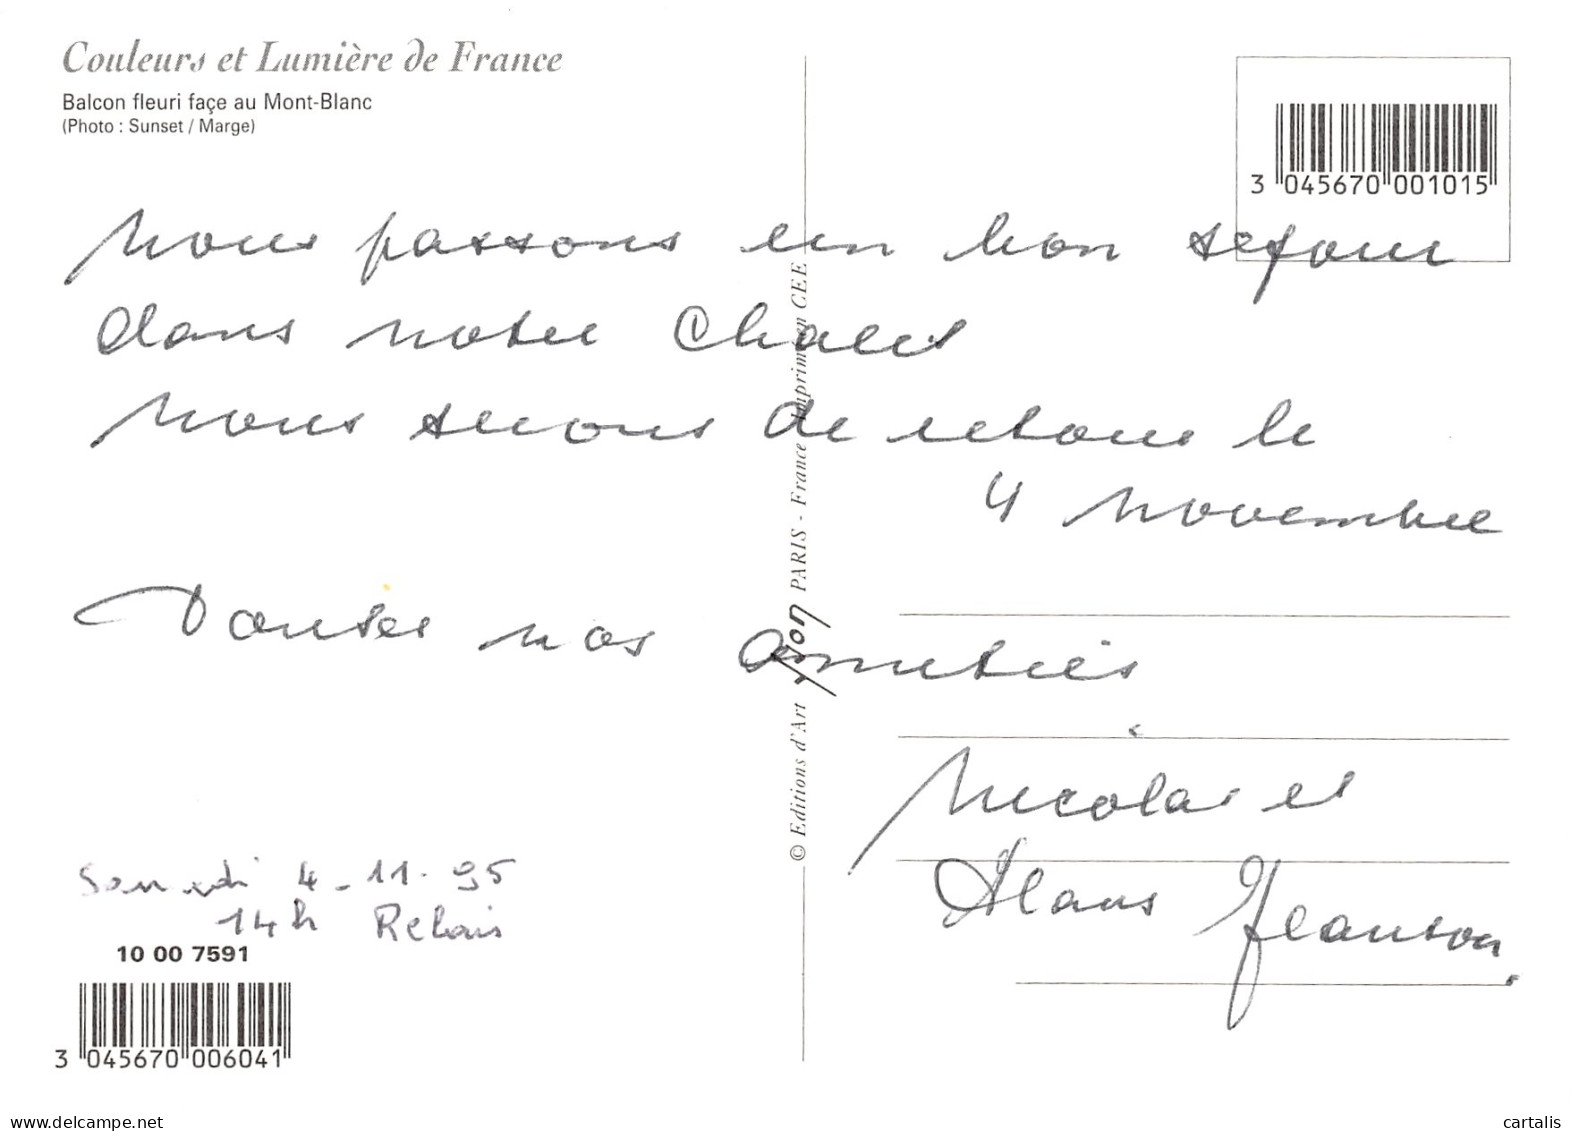 Couleurs et Lumière de France
Balcon fleuri façe au Mont-Blanc
(Photo : Sunset / Marge)
3 045670 001015
Nous passons un bon séjour
dans notre Chalet
Nous serons de retour le
4 Novembre
nos amitiés
Nicolas et
© Editions d'Art yvon PARIS - France Imprimé en CEE
Samedi 4-11-95
14h Relais
10 00 7591
3 045670 006041
delcampe.net
cartalis